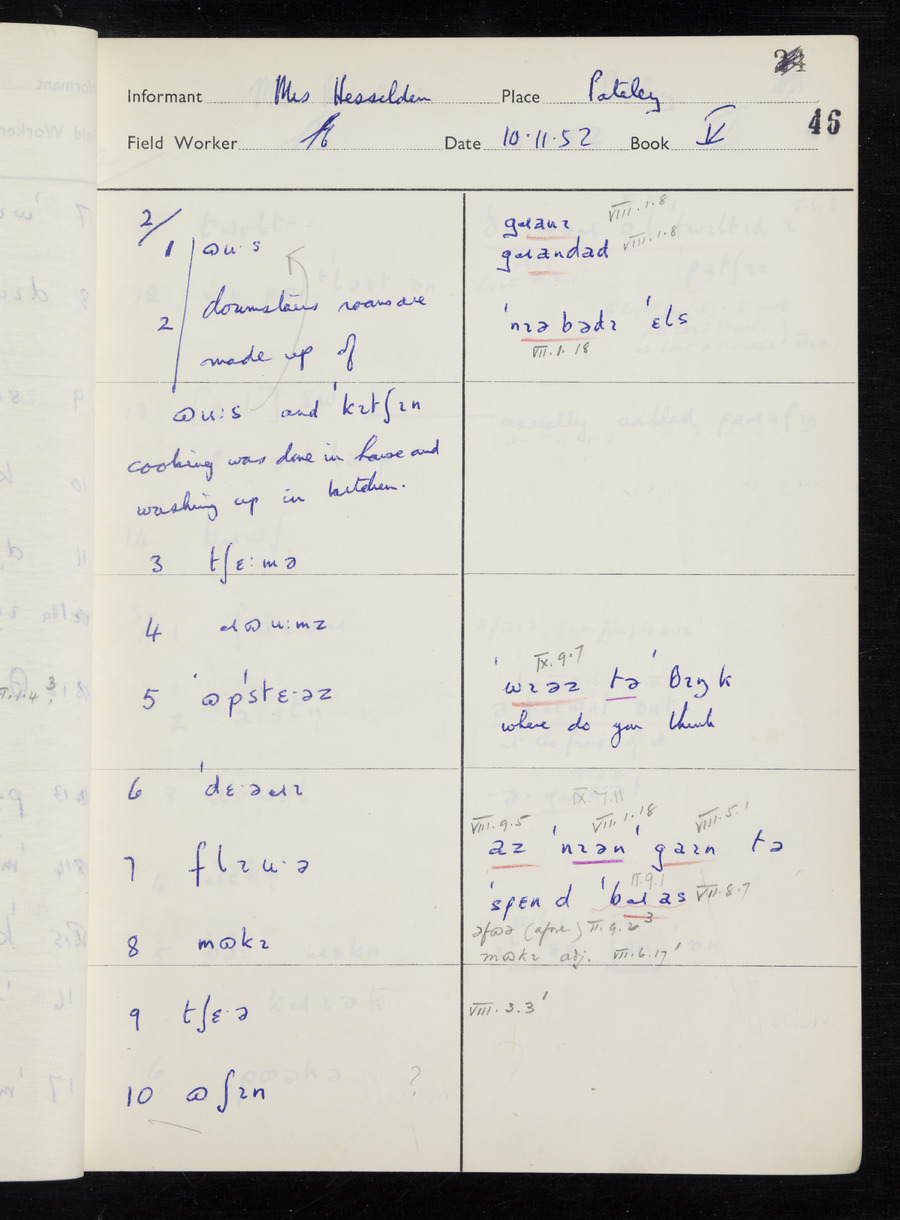 46
Informant Mrs Hesselden Place Pateley
Field Worker Date 10.11.52 Book V
2/
1 ɷu·s
2 downstairs rooms are
made up of
ɷu:s and 'kɪtʃɪn
cooking was done in house and
washing up in kitchen.
3 tʃɛ:mə
4 ɹɷu:mz
5 'ɷp'stɛ·əz
6 'dɛ·əɹɪ
7 flɪu·ə
8 mɷkɪ
9 tʃɛ·ə
10 ɷʃɪn
?
gɹanɪ VIII.1.8
gɹandad VIII.1.8
'nɪəbədɪ 'ɛls
VII.1.18
IX.9.7
'wɪəz tə 'θɪŋk
where do you think
IX.4.11
VIII.9.5 VII.1.18 VIII.5.1
az 'nɪən 'gaɪn tə
II.9.1
'spɛnd 'bɹas VII.8.7
əfɷə (afore) II.9.2 3
mɷkɪ adj. VII.6.17'
VIII.3.3'